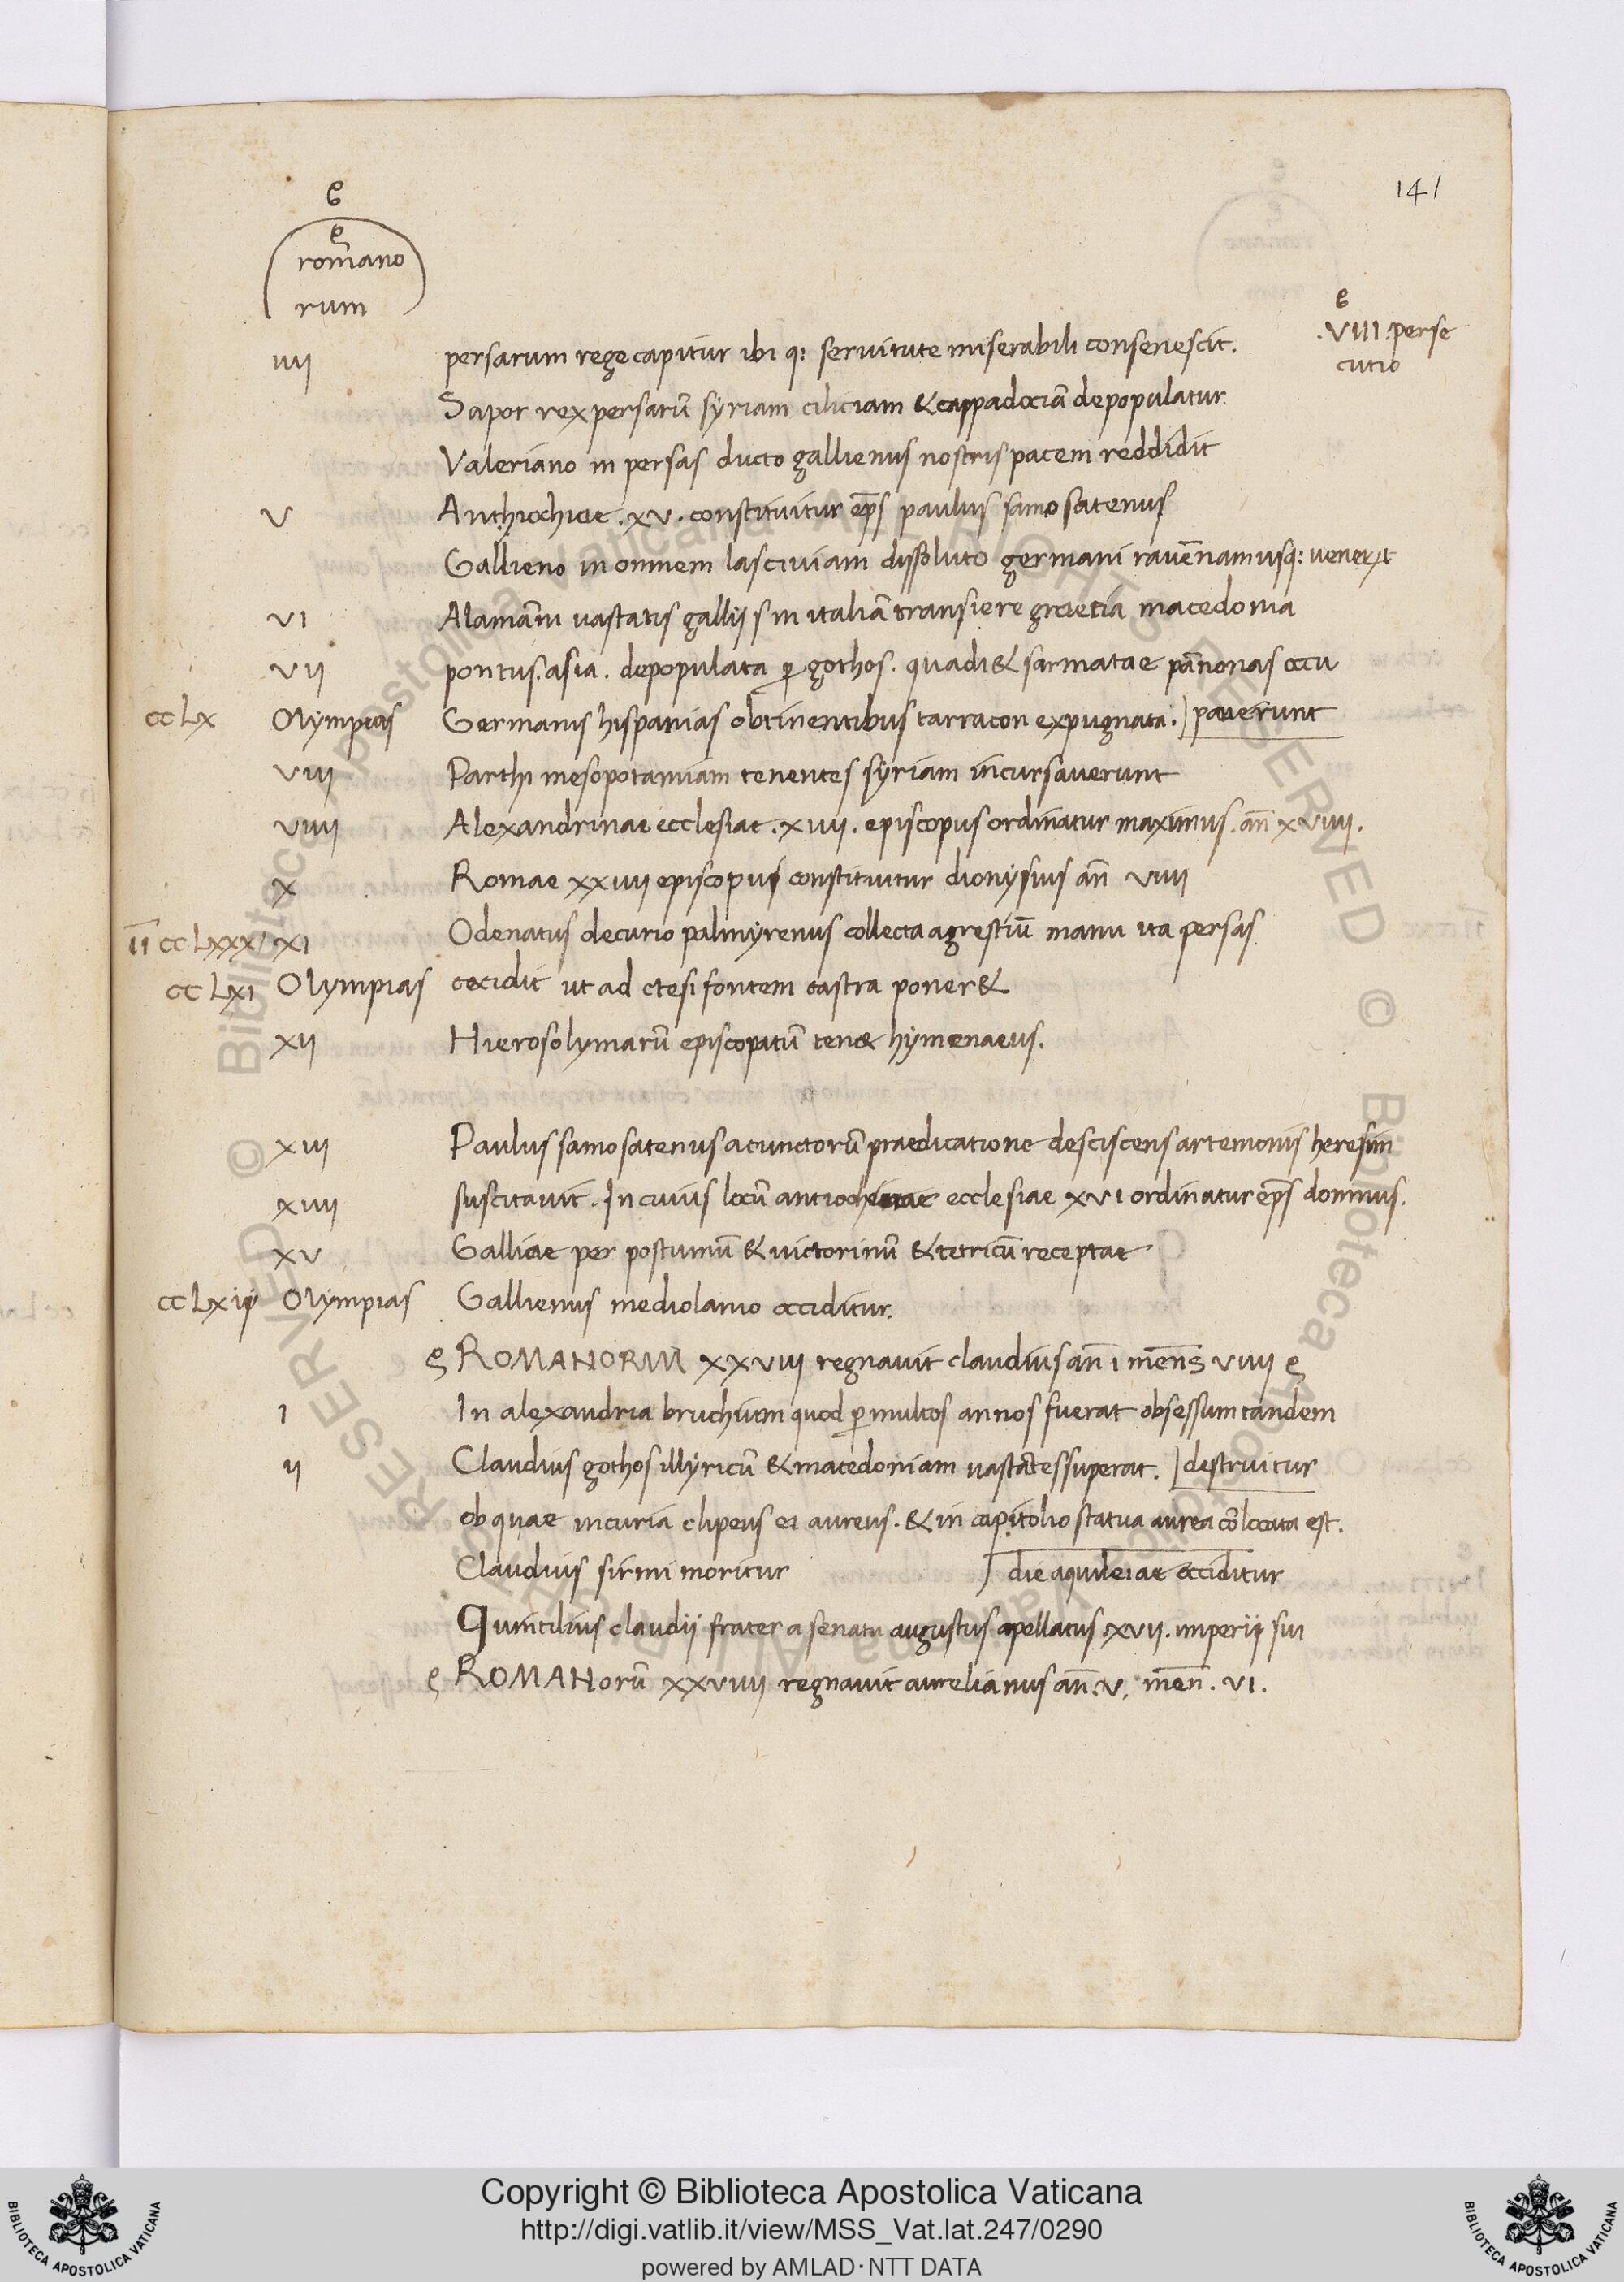 141
romano
rum
.VIII. perse
cutio
IIII persarum rege capitur ibi q: seruitute miserabili consenescit.
Sapor rex persarū syriam ciliciam & cappadociā depopulatur.
Valeriano in persas ducto gallienus nostris pacem reddidit
V Anthiochiae .XV. constituitur ep̄s paulus samosatenus
Gallieno in omnem lasciuiam dissoluto germani rauēnam usq: uener̄t
VI Alamāni uastatis galliis in italiā transiere graetia macedonia
VII pontus. asia. depopulata ꝑ gothos. quadi & sarmatae pānonas occu
CCLX Olympias Germanis hispanias obtinentibus tarracon expugnata. ] pauerunt
VIII Parthi mesopotamiam tenentes syriam incursauerunt
VIIII Alexandrinae ecclesiae .XIIII. episcopus ordinatur maximus. an̄ XVIIII.
X Romae XXIIII episcopus constituitur dionysius an̄ VIIII
II CCLXXXI XI Odenatus decurio palmyrenus collecta agrestiū manu ita persas
CCLXI Olympias cecidit ut ad ctesifontem castra poner&
XII Hierosolymarū episcopatū ten& hymenaeus.
XIII Paulus samosatenus a cunctorū praedicatione desciscens artemonis heresim
XIIII suscitauit. In cuius locū antiochenae ecclesiae XVI ordinatur ep̄s domnus.
XV Galliae per postumū & uictorinū & tetricū receptae
CCLXII Olympias Gallienus mediolano occiditur.
ROMANORUM XXVIII regnauit claudius an̄ I men̄s VIIII
I In alexandria bruchium quod ꝑ multos annos fuerat obsessum tandem
II Claudius gothos illyricū & macedoniam uastantes superat. ] destruitur
ob quae in curia clipeus ei aureus. & in capitolio statua aurea cōlocata est.
Claudius sirmi moritur ] die aquileiae occiditur
Quintilius claudii frater a senatu augustus apellatus .XVII. imperii sui
ROMANorū XXVIIII regnauit aurelianus an̄. V. men̄. VI.
Copyright © Biblioteca Apostolica Vaticana
http://digi.vatlib.it/view/MSS_Vat.lat.247/0290
powered by AMLAD·NTT DATA
BIBLIOTECA APOSTOLICA VATICANA
BIBLIOTECA APOSTOLICA VATICANA